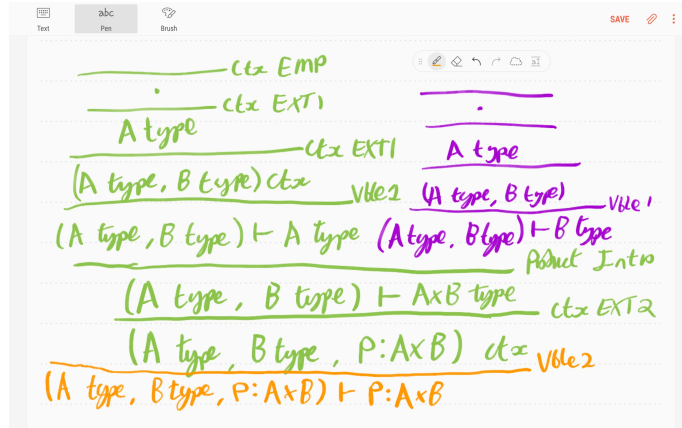 Text abc Pen Brush SAVE
Ctx EMP
·
Ctx EXT1
·
A type
Ctx EXT1
A type
(A type, B type) ctx
Vble2
(A type, B type)
Vble1
(A type, B type) ⊢ A type
(A type, B type) ⊢ B type
Product Intro
(A type, B type) ⊢ A×B type
Ctx EXT2
(A type, B type, p:A×B) ctx
Vble2
(A type, B type, p:A×B) ⊢ p:A×B